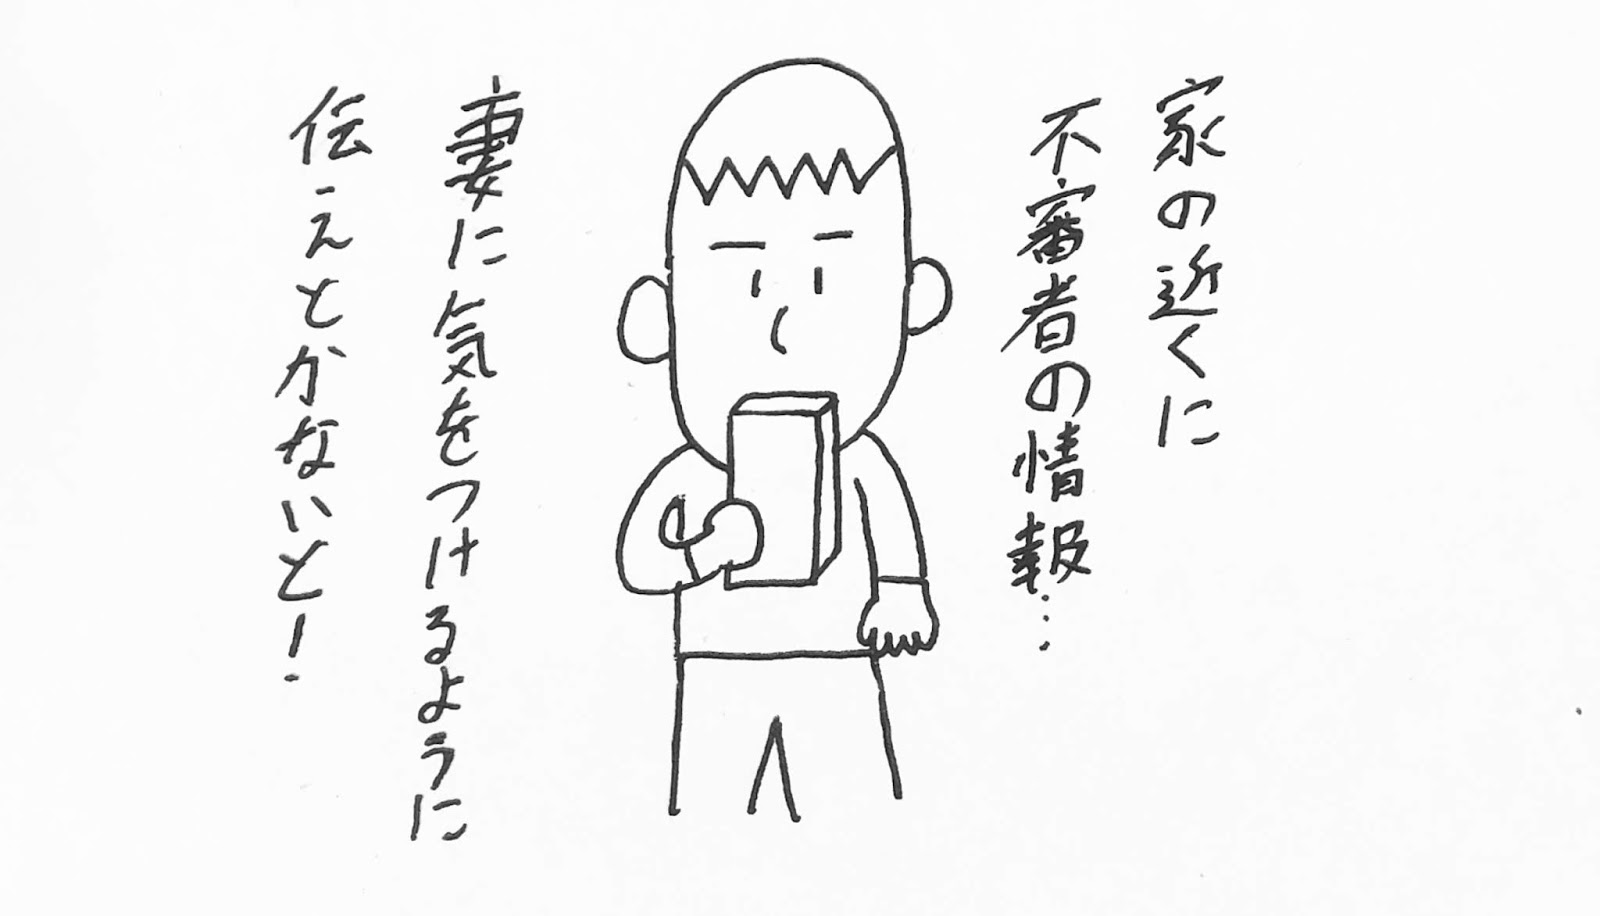 家の近くに
不審者の情報…
妻に気をつけるように
伝えとかないと！